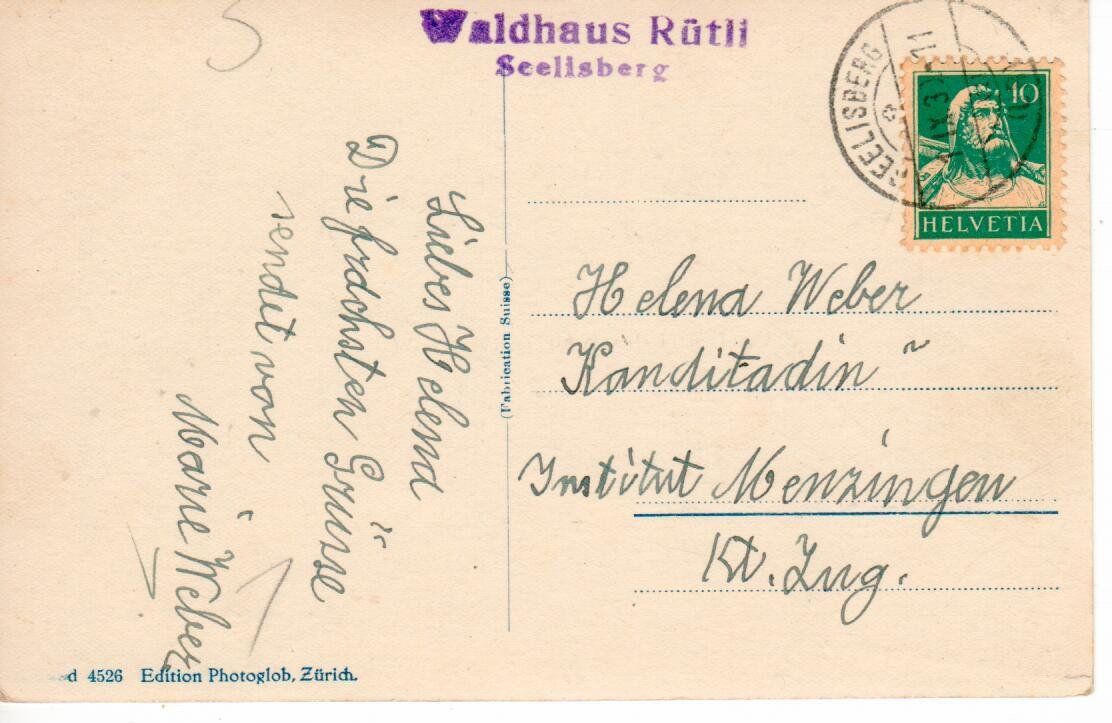 Waldhaus Rütli
Seelisberg
SEELISBERG
10
HELVETIA
Liebes Helena
Die frohsten Grüsse
sendet von
Marie Weber
(Fabrication Suisse)
Helena Weber
Kanditadin
Institut Menzingen
Kt. Zug.
4526 Edition Photoglob, Zürich.